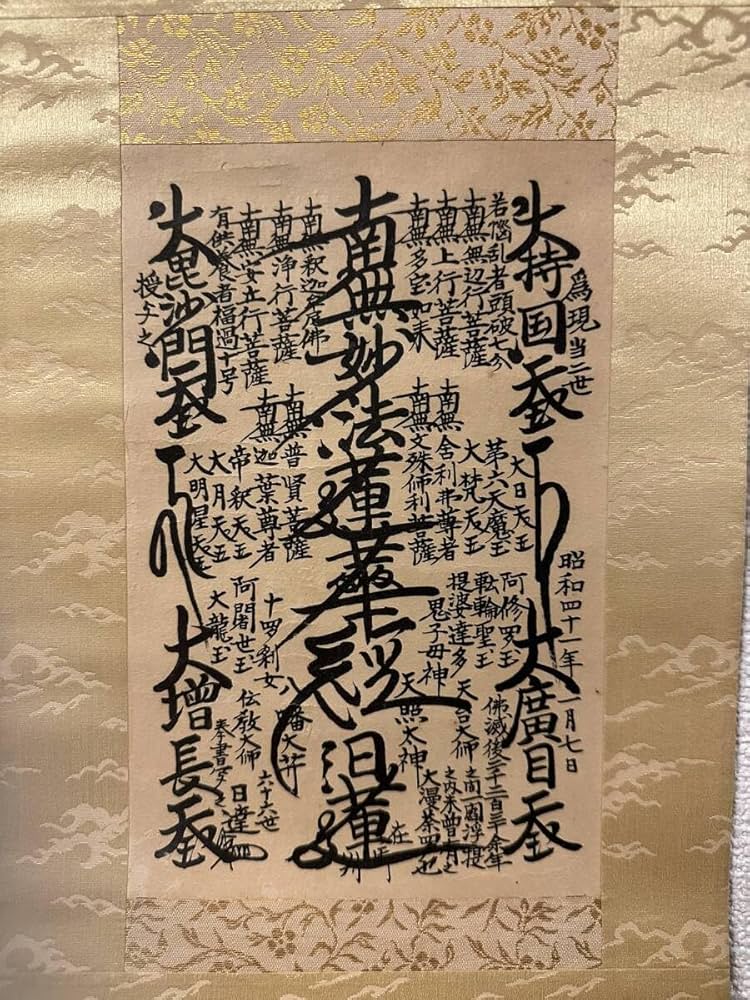 為現当二世
昭和四十一年一月七日
大持国天王
大廣目天王
若悩乱者頭破七分
南無無辺行菩薩
南無上行菩薩
南無多宝如来
大日天王
第六天魔王
大梵天王
南無舎利弗尊者
南無文殊師利菩薩
阿修羅王
転輪聖王
提婆達多
鬼子母神
天照大神
天台大師
佛滅後二千二百三十余年
之間一閻浮提
之内未曾有之
大漫荼羅也
南無妙法蓮華経
日蓮
在御判
南無釈迦牟尼佛
南無浄行菩薩
南無安立行菩薩
有供養者福過十号
南無普賢菩薩
南無迦葉尊者
帝釈天王
大月天王
大明星天王
十羅刹女
阿闍世王
大龍王
八幡大菩薩
伝教大師
六十六世
日達
奉書写之
大毘沙門天王
授与之
大増長天王